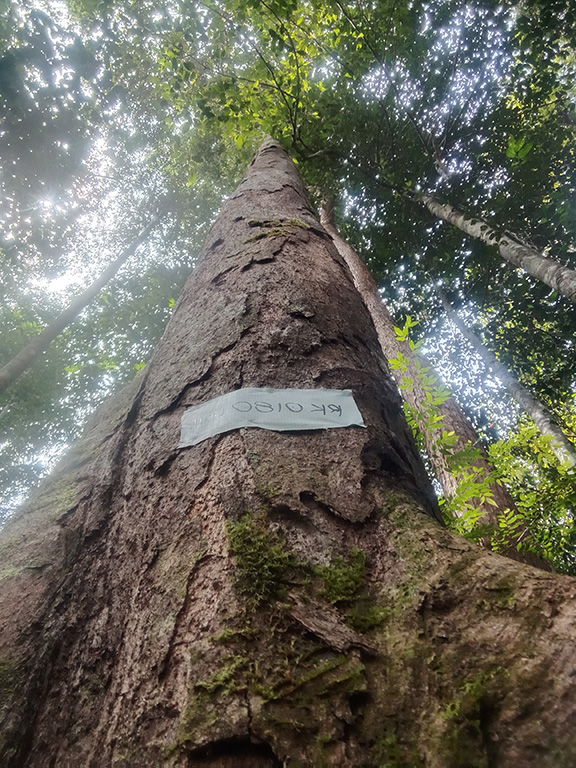 RK 0180